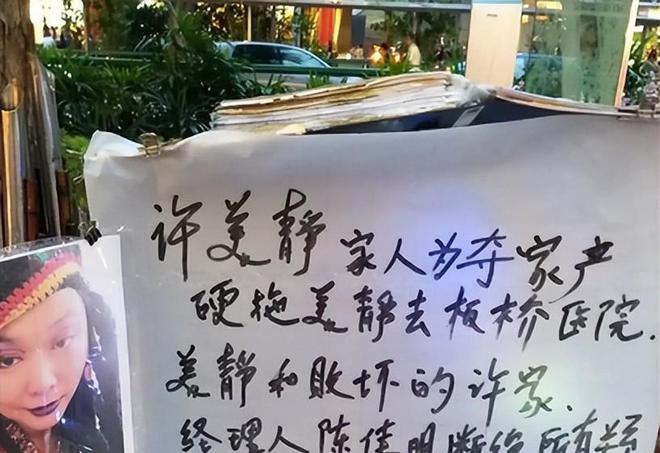 许美静家人为夺家产
硬拖美静去板桥医院.
美静和败坏的许家.
经理人陈佳明断绝所有关系